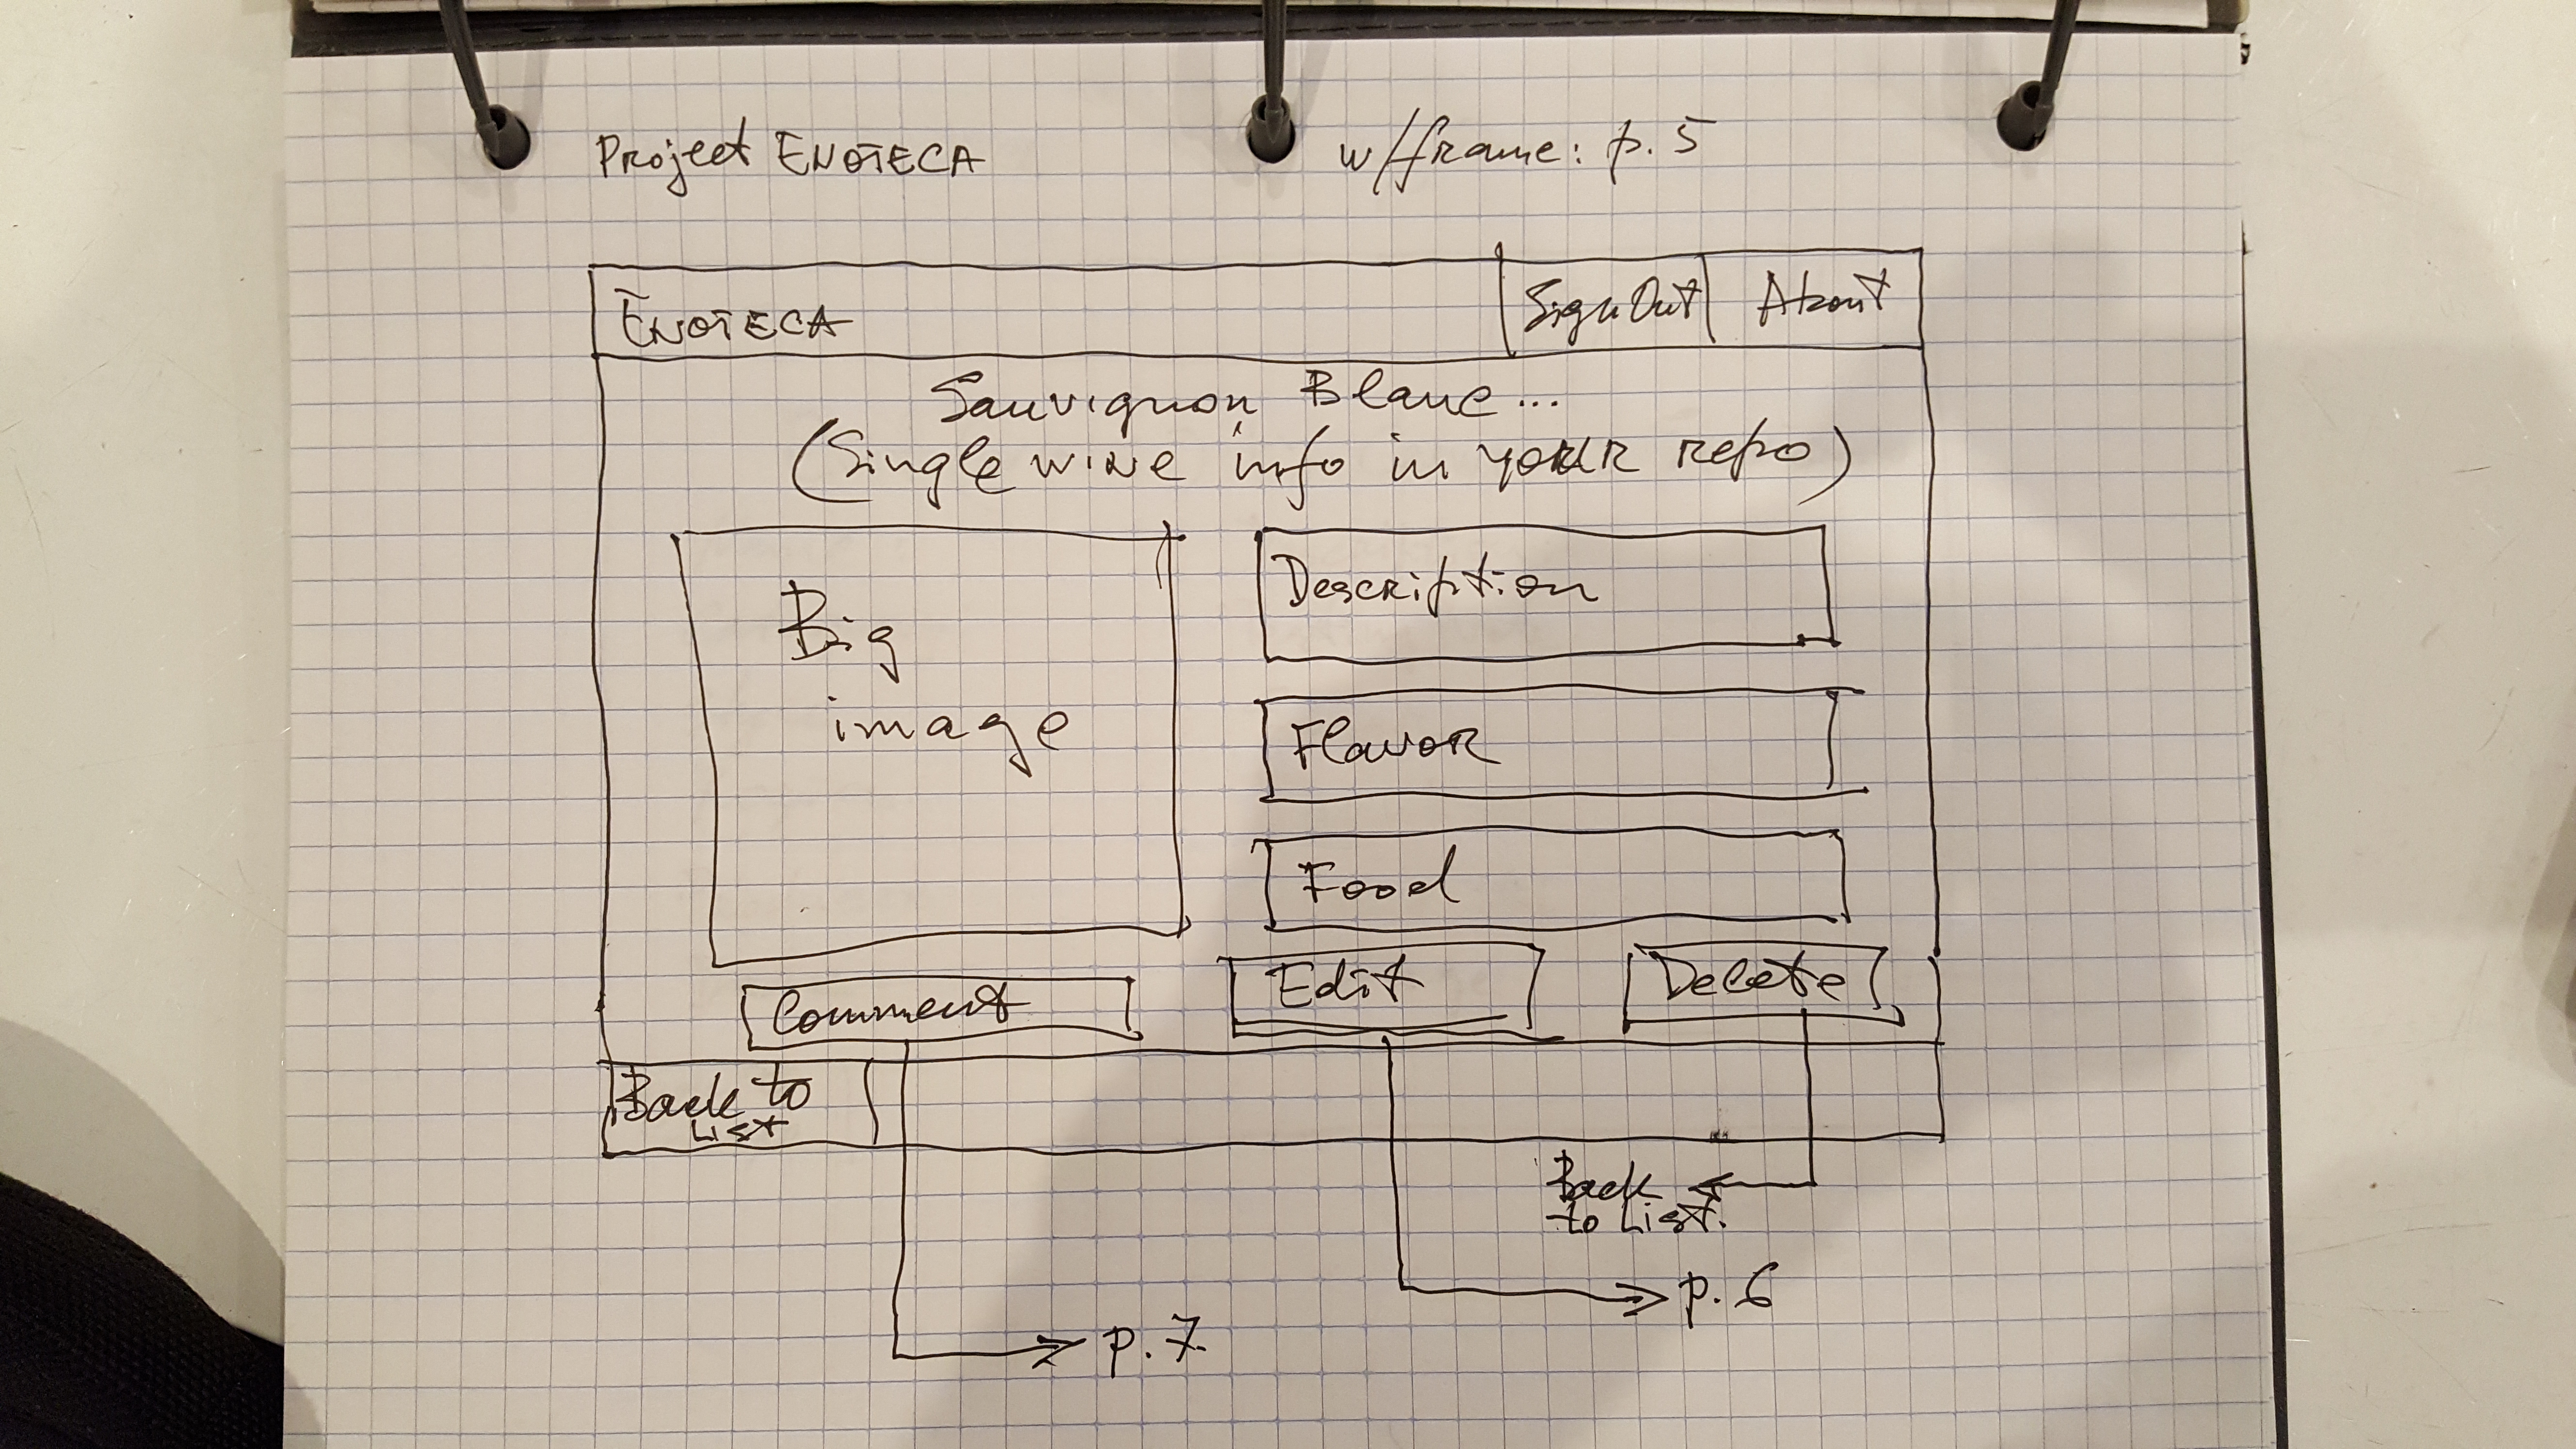 Project ENOTECA w/frame: p. 5
ENOTECA SignOut About
Sauvignon Blanc...
(Single wine info in your repo)
Big
image
Description
Flavor
Food
Comment Edit Delete
Back to
List
Back
to List.
p. 7.
p. 6